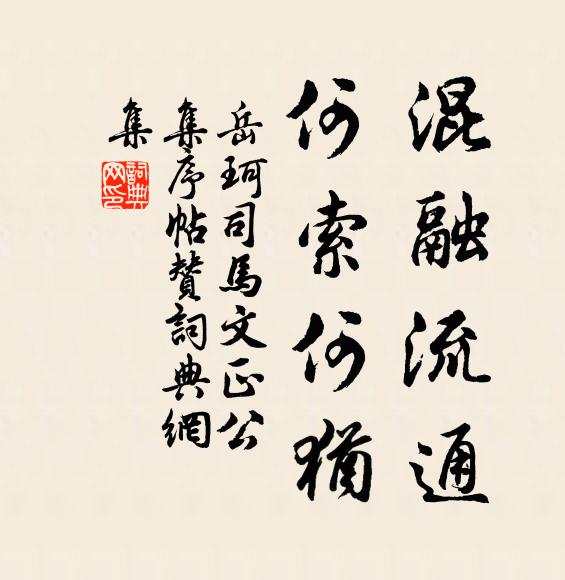 混融流通
何索何猶
岳珂司馬文正公
集序帖贊詞典網
集
詞典網印